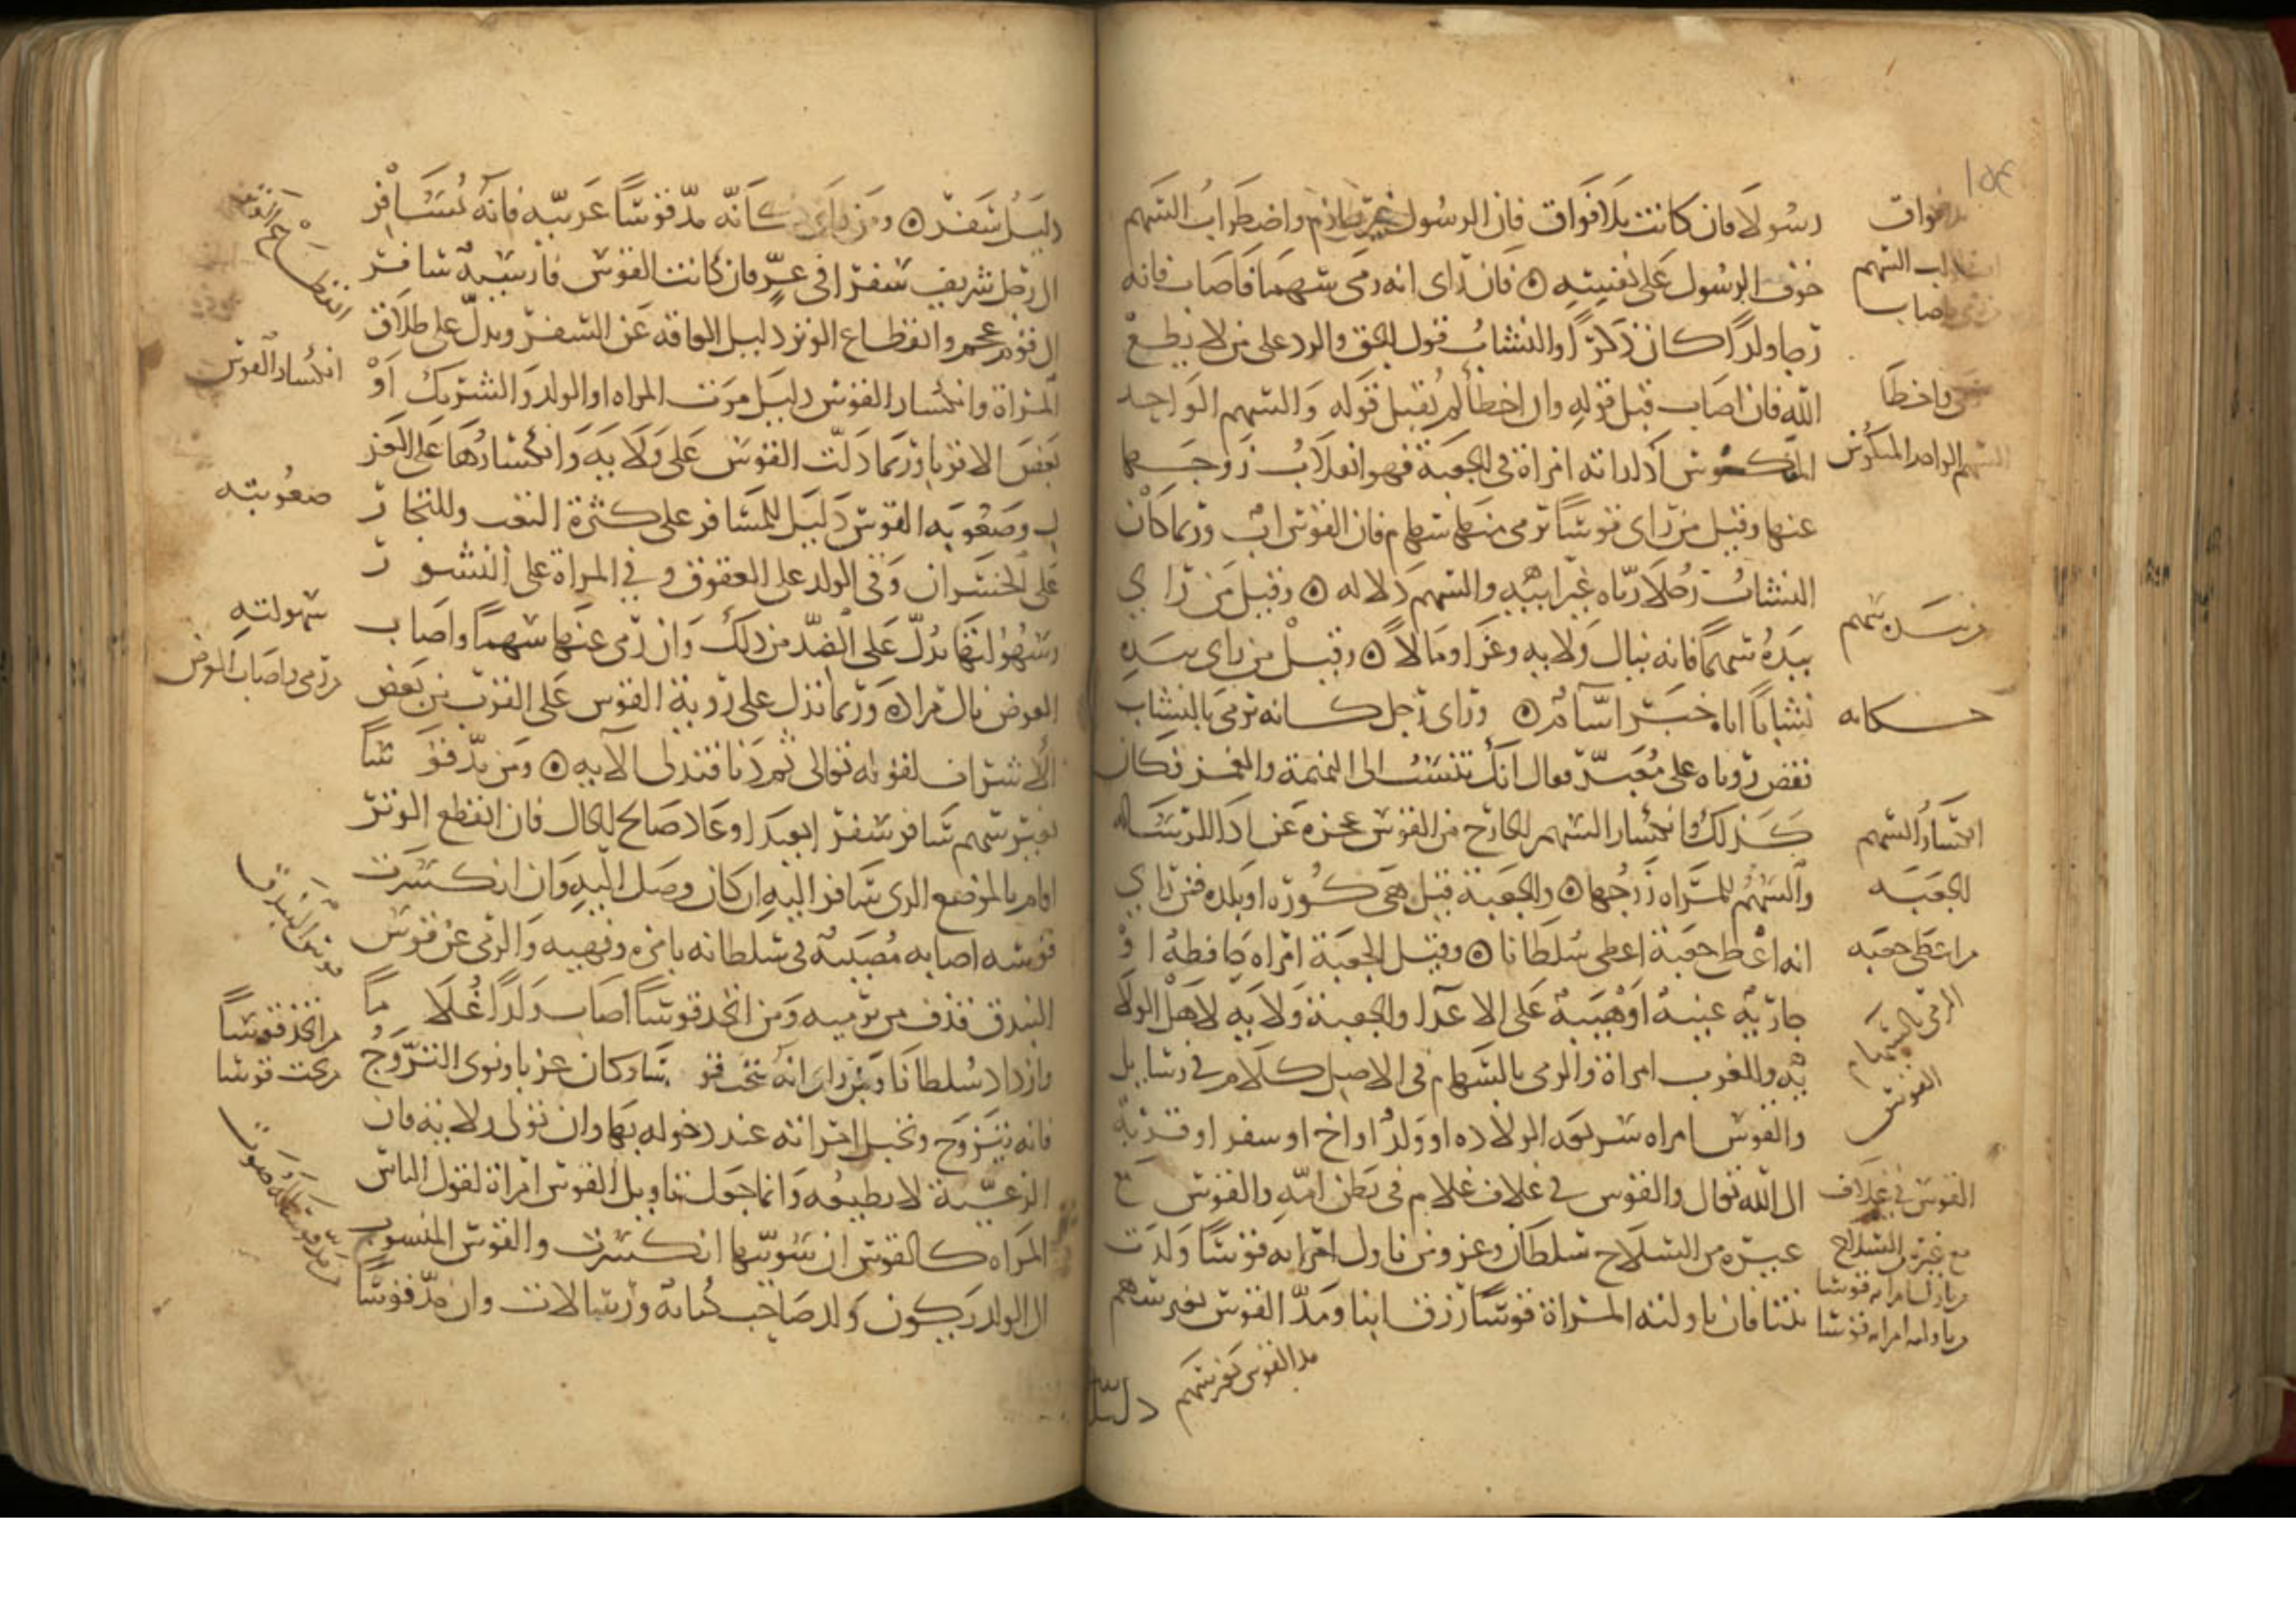 رسولا فان كانت بلا فواق فان الرسول غير حازم واضطراب السهم
خوف الرسول على نفسه ۞ فان راى انه رمى سهمها فاصاب فانه
رجا ولدا كان ذكرا والنشاب قول الحق والرد على من لا يطيع
الله فان اصاب قبل قوله وان اخطا لم يقبل قوله والسهم الواحد
المنكوس اذا راته امراة في الجعبة فهو انقلاب زوجها
عنها وقيل من راى قوسا ترمى منها سهام فان القوس اب وربما كان
النشاب رجلا رباه غير ابيه والسهم دلاله ۞ وقيل من راى
بيده سهما فانه ينال ولايه وعزا ومالا ۞ وقيل من راى بيده
نشابا اتاه خبر اسار ۞ وراى رجل كانه ترمى بالنشاب
فقص روياه على معبر فقال انك تنسب الى النميمة والغمز فكان
كذلك وانكسار السهم الخارج من القوس عجزه عن ادا الرسالة
والسهم للمراه زوجها ۞ والجعبة قيل هى كوره او بلده فمن راى
انه اعطى جعبة اعطى سلطانا ۞ وقيل الجعبة امراه حافظة او
جارية غنية او هيبة على الاعدا والجعبة ولاية لاهل الولا
ية وللعزب امراة والرمى بالسهام في الاصل كلام في رسايل
والقوس امراه سريعه الولاده او ولد او اخ او سفر او قربة
الى الله تعالى والقوس في غلاف غلام في بطن امه والقوس مع
غيره من السلاح سلطان وعز ومن ناول امراته قوسا ولدت
بنتا فان ناولته المراة قوسا رزق ابنا ومد القوس بغير سهم
دليل
بلا فواق
اضطراب السهم
رمى فاصاب
رمى فاخطا
السهم الواحد المنكوس
من بيده سهم
حكايه
انكسار السهم
الجعبه
من اعطى جعبه
الرمى بالسهام
القوس
القوس في غلاف
مع غيره من السلاح
من ناول امراته قوسا
من ناولته امراته قوسا
مد القوس بغير سهم
دليل سفر ۞ ومن راى كانه مد قوسا عربيه فانه يسافر
الى رجل شريف سفرا في عز فان كانت القوس فارسية سافر
الى قوم عجم وانقطاع الوتر دليل العاقه عن السفر ويدل على طلاق
المراة وانكسار القوس دليل موت المراه او الولد والشريك او
بعض الاقربا وربما دلت القوس على ولايه وانكسارها على العز
ل وصعوبه القوس دليل للمسافر على كثرة التعب وللتجار
على الخسران وفي الولد على العقوق وفي المراة على النشوز
وسهولتها يدل على الضد من ذلك وان رمى عنها سهما واصاب
الغرض نال مراده وربما تدل على روية القوس على القرب من بعض
الاشراف لقوله تعالى ثم دنا فتدلى الآيه ۞ ومن مد قوسا
بغير سهم سافر سفرا بعيدا وعاد صالح الحال فان انقطع الوتر
اقام بالموضع الذى سافر اليه ان كان وصل اليه وان انكسرت
قوسه اصابه مصيبة في سلطانه بامره ونهيه والرمى عن قوس
البندق قذف من يرميه ومن اتخذ قوسا اصاب ولدا غلاما
وازداد سلطانا ومن راى انه نحت قوسا وكان عزبا ونوى التزوج
فانه يتزوج وتحبل امراته عند دخوله بها وان تولى ولاية فان
الرعية لا يطيعه وانما جعلنا تاويل القوس امراة لقول الناس
المراه كالقوس ان سويتها انكسرت والقوس المنسوب
الى الولد يكون ولد صاحب كتابة ورسالات وان مد قوسا
انقطاع الوتر
انكسار القوس
صعوبته
سهولته
من رمى واصاب الغرض
من اتخذ قوسا
من نحت قوسا